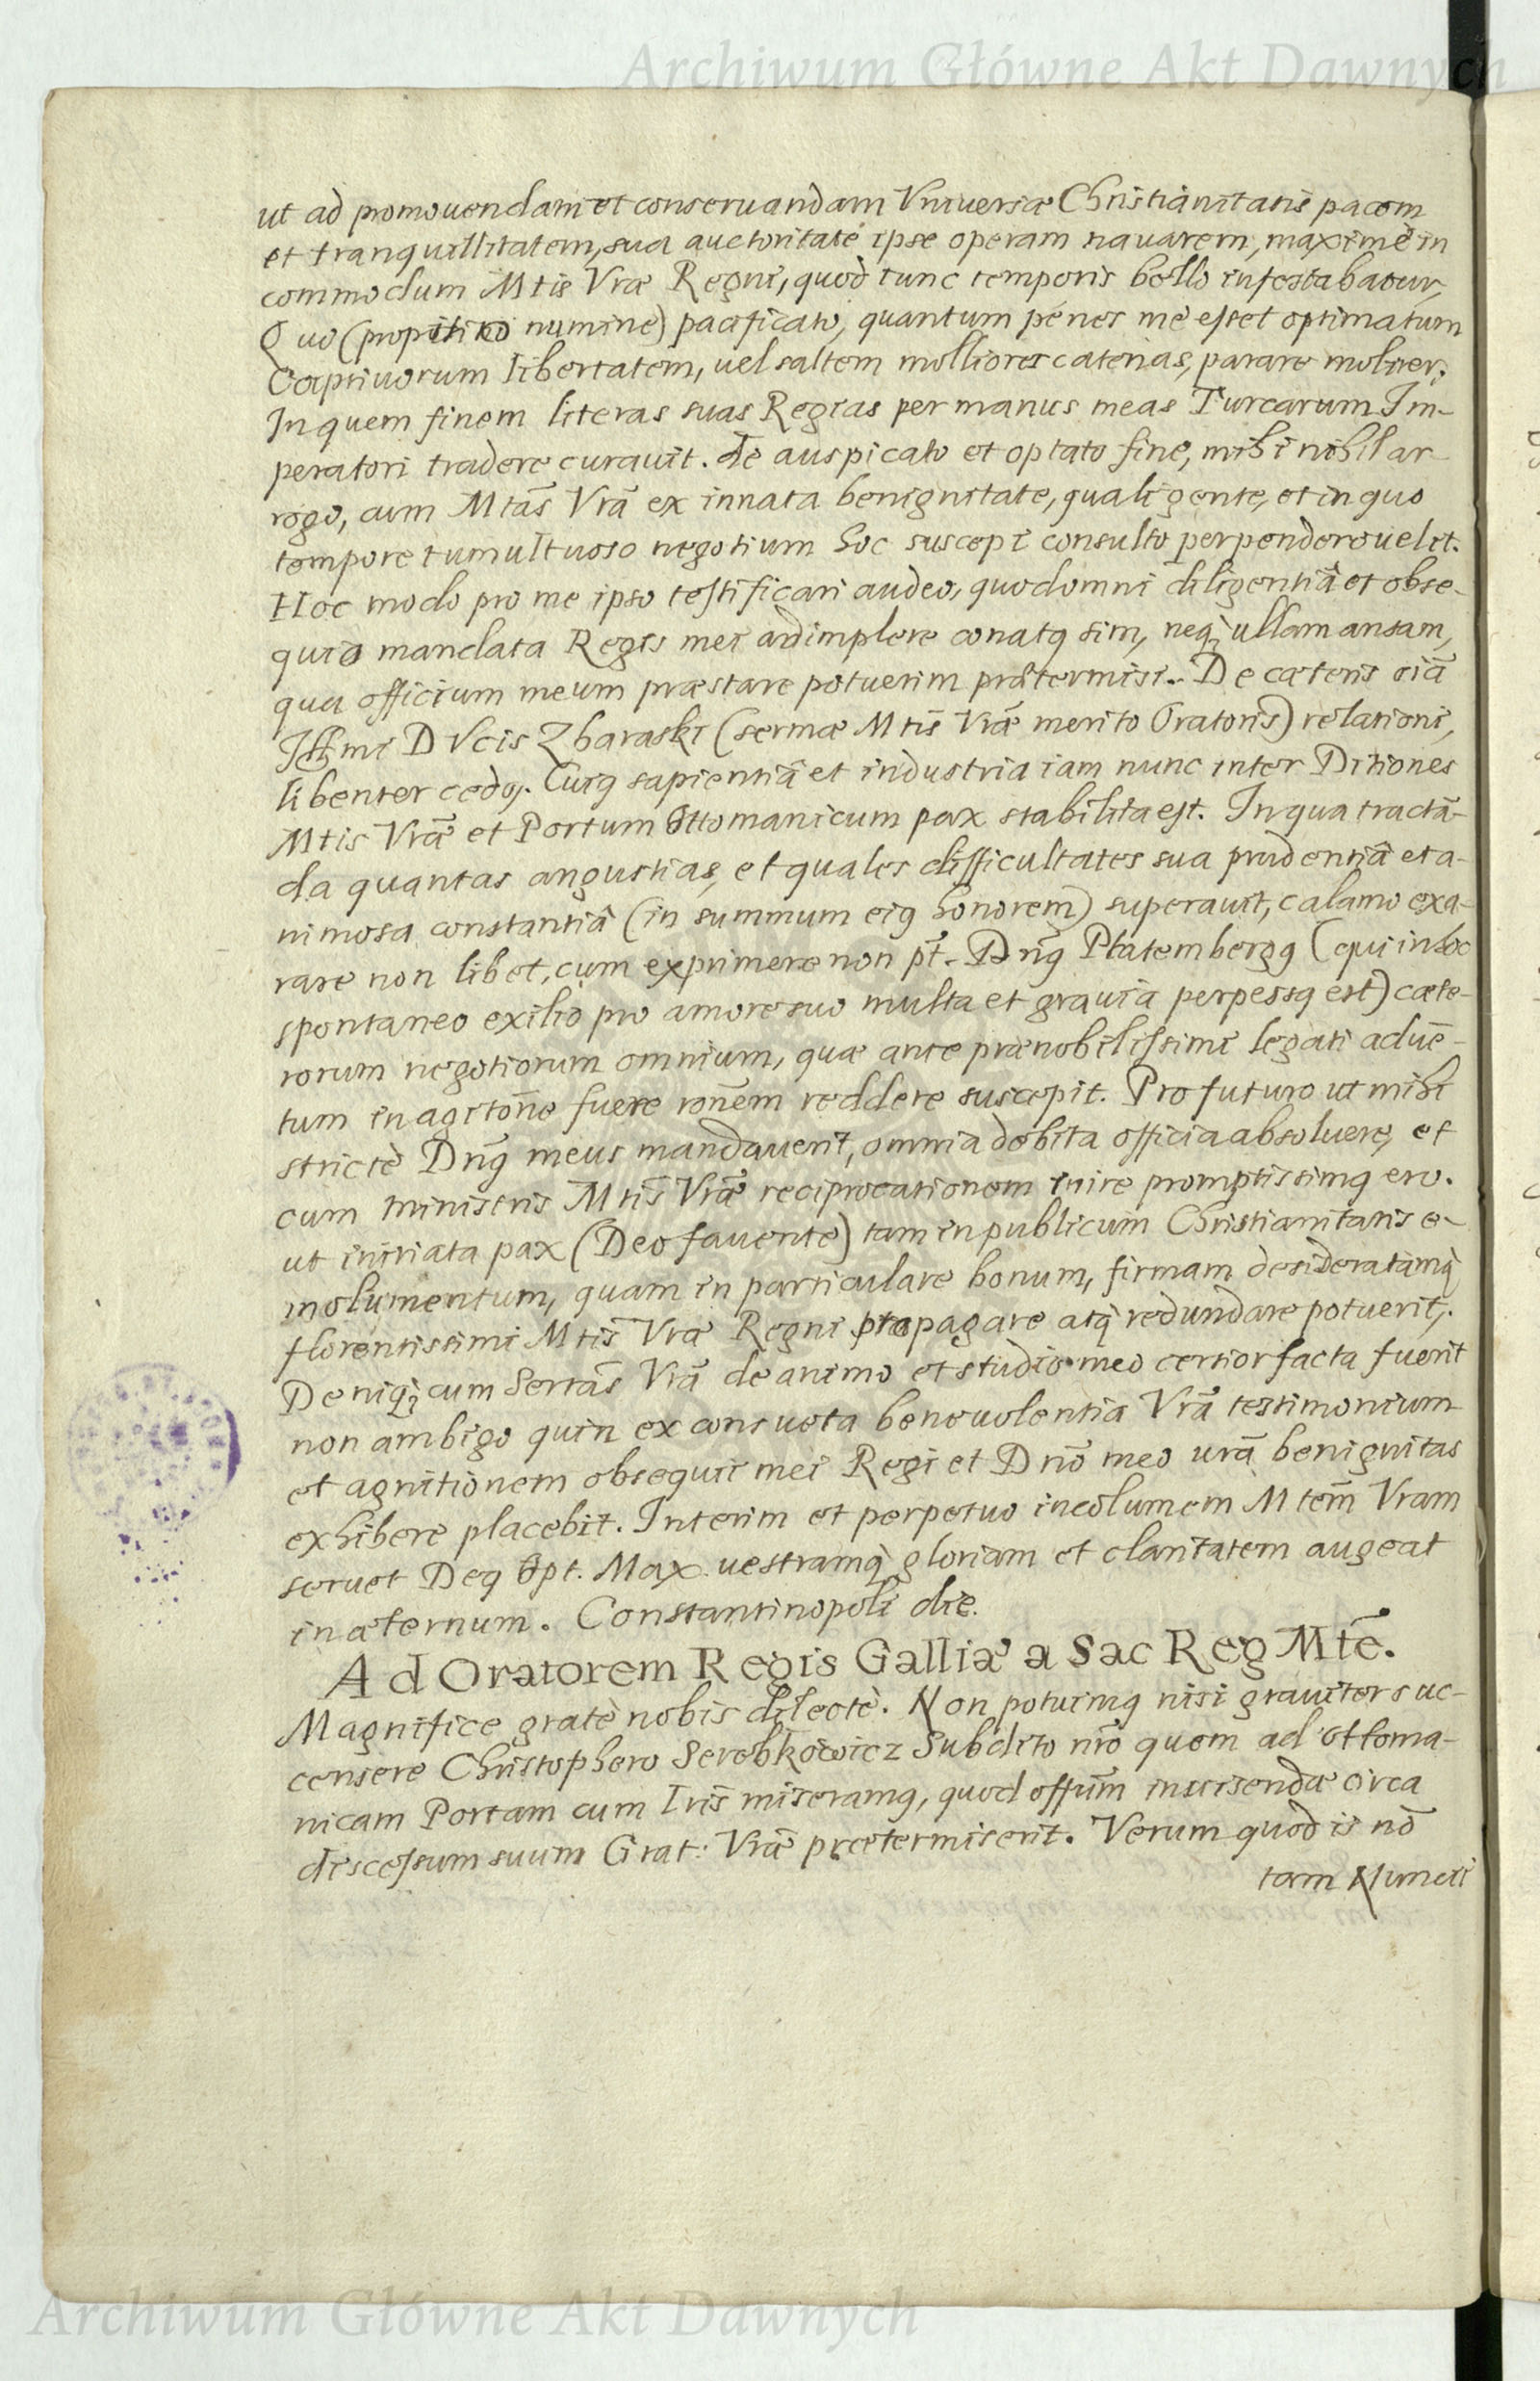 Archiwum Główne Akt Dawnych
ut ad promouendam et conseruandam Vniuersæ Christianitatis pacem
et tranquillitatem, sua auctoritate ipse operam nauarem, maximè in
commodum Mtis Vræ Regni, quod tunc temporis bello infestabatur,
Quo (propitio numine) pacificato, quantum penes me esset optimatum
Captiuorum libertatem, uel saltem molliores catenas, parare molirer.
In quem finem literas suas Regias per manus meas Turcarum Im-
peratori tradere curauit. De auspicato et optato fine, mihi nihil ar-
rogo, cum Mtãs Vrã ex innata benignitate, quali gente, et in quo
tempore tumultuoso negotium hoc suscepi consulto perpendere uelit.
Hoc modo pro me ipso testificari audeo, quod omni diligentiâ et obse-
quio mandata Regis mei adimplere conatq sim, neq; ullam ansam,
qua officium meum præstare potuerim prætermisi. De cæteris oiã
Illmi DVcis Zbaraski (sermæ Mtis Vræ merito Oratoris) relationi,
libenter cedo. Cuiq sapientiâ et industria iam nunc inter Ditiones
Mtis Vræ et Portum Ottomanicum pax stabilita est. In qua tractã-
da quantas angustias, et quales difficultates sua prudentiâ et a-
nimosa constantiâ (in summum eiq honorem) superauit, calamo exa-
rare non libet, cum exprimere non pt̃. Dnq̃ Ptatembergq (qui in hoc
spontaneo exilio pro amore suo multa et grauia perpessq est) cæte-
rorum negotiorum omnium, quæ ante prænobilissimi legati aduẽ-
tum in agitõne fuere rõnem reddere suscepit. Pro futuro ut mihi
strictè Dnq̃ meus mandauerit, omnia debita officia absoluere, et
cum ministris Mtis Vræ reciprocationem inire promptissimq ero.
ut initiata pax (Deo fauente) tam in publicum Christianitatis e-
molumentum, quam in particulare bonum, firmam desideratamq;
florentissimi Mtis Vræ Regni propagare atq; redundare potuerit;.
Deniq; cum Sertãs Vrã de animo et studio meo certior facta fuerit
non ambigo quin ex consueta beneuolentia Vrã testimonium
et agnitionem obsequii mei Regi et Dnõ meo urã benignitas
exhibere placebit. Interim et perpetuo incolumem Mtem̃ Vram
seruet Deq Opt. Max. uestramq; gloriam et claritatem augeat
in æternum. Constantinopoli die.
Ad Oratorem Regis Galliæ a Sac Reg Mtẽ.
Magnifice gratè nobis dilectè. Non potuimq nisi grauiter suc-
censere Christophero Serebkowicz Subdito nrõ quem ad ottoma-
nicam Portam cum lris̃ miseramq, quod offum̃ inuisendæ circa
discessum suum Grat: Vræ prætermiserit. Verum quod is nõ
tam Numeri
Archiwum Główne Akt Dawnych